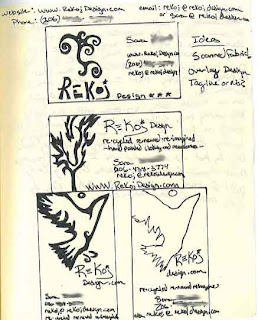 website: www.RekojDesign.com
email: rekoj@rekojdesign.com
Phone: (206)
or Sara@rekojdesign.com
Sara
www.RekojDesign.com
(206)
rekoj@rekojdesign.com
REKOJ
Design
Ideas
Scanned fabric
Overlay Design
Tagline or no?
REKOJ Design
recycled renewed re-imagined
hand painted clothing and accessories
Sara
206-
rekoj@rekojdesign.com
www.RekojDesign.com
REKOJ
Design.com
Sara
rekoj@rekojdesign.com
recycled renewed reimagined
REKOJ
design.com
recycled renewed reimagine
Sara
206
rekoj@rekojdesign.com